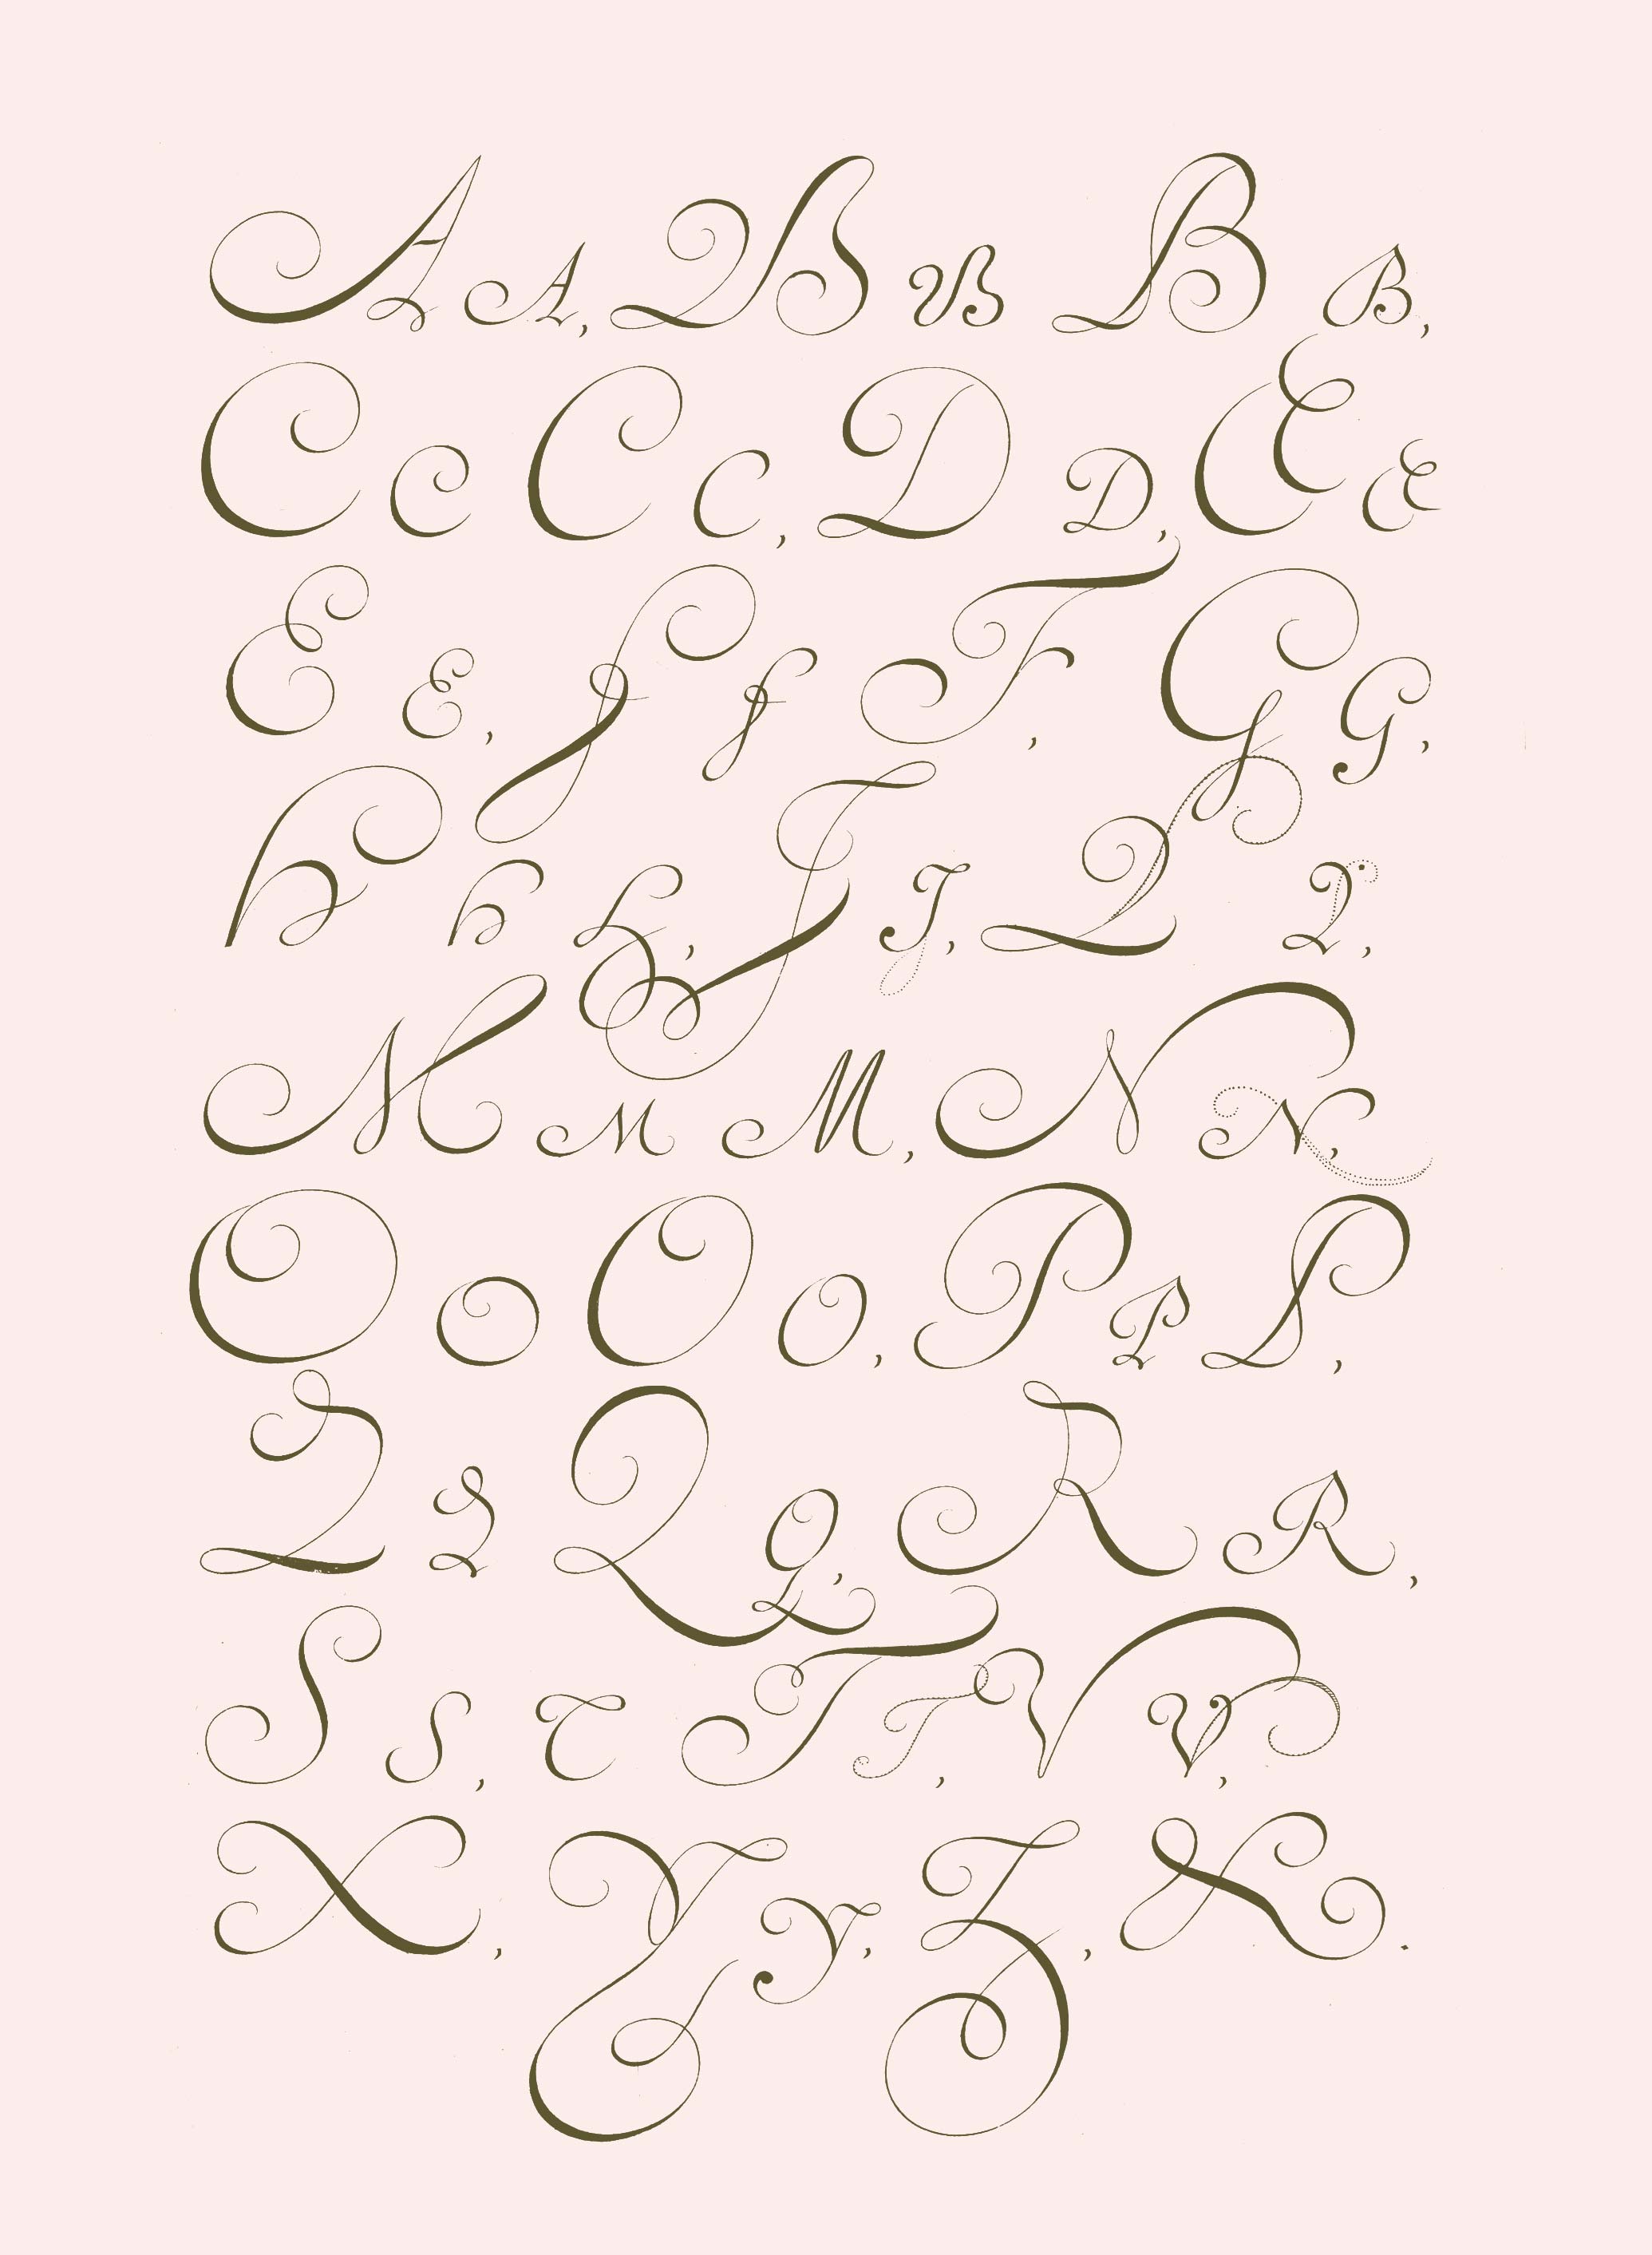 A A, B B B B,
C C C C, D D, E E
E E, F F F, G G,
H H H, I I, L L,
M M M, N N,
O O O O, P P P,
Q Q Q Q, R R,
S S, T T T, V V,
X, Y Y, Z, &.